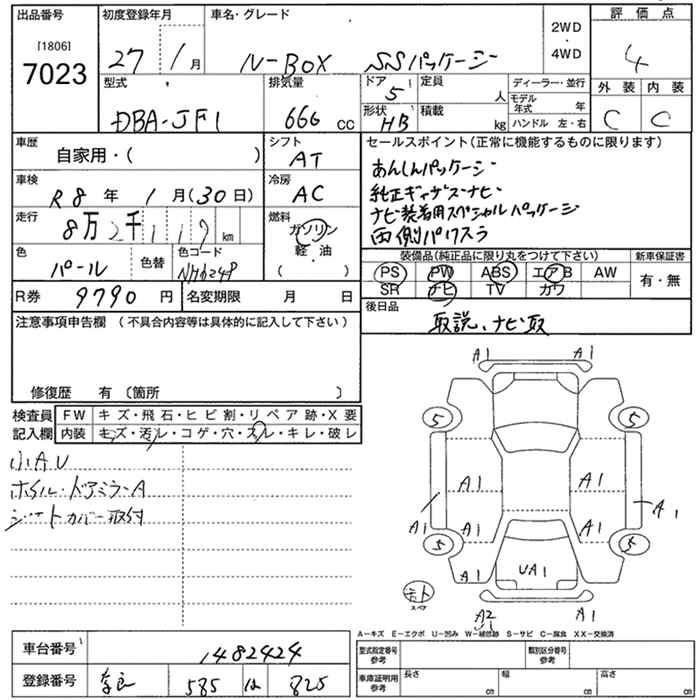 出品番号 初度登録年月 車名・グレード 2WD ・ 4WD 評価点
[1806] 7023 27年1月 N-BOX SSパッケージ 4
型式 排気量 ドア 5 定員 人 ディーラー・並行 外装 内装
DBA-JF1 666 cc 形状 HB 積載 kg モデル年式 年 ハンドル 左・右 C C
車歴 自家用・( ) シフト AT セールスポイント(正常に機能するものに限ります)
車検 R8年1月(30日) 冷房 AC あんしんパッケージ
純正ギャザズナビ
走行 8万2千119km 燃料 ガソリン 軽・油 ナビ装着用スペシャルパッケージ
両側パワスラ
色 パール 色替 色コード 装備品(純正品に限り丸をつけて下さい) 新車保証書
PS PW ABS エアB AW 有・無
SR ナビ TV カワ
R券 9790円 名変期限 月 日 後日品
取説、ナビ取
注意事項申告欄(不具合内容等は具体的に記入して下さい)
修復歴 有〔箇所 〕
検査員記入欄 FW キズ・飛石・ヒビ割・リペア跡・X要
内装 キズ・汚レ・コゲ・穴・スレ・キレ・破レ
小AU
ホイル・ドアミラーA
シートカバー取付
A1 A1
5 5
A1 A1
A1 A1
A1 A1
5 5
A1 UA1
スペア
A2 A1
A-キズ E-エクボ U-凹み W-補修跡 S-サビ C-腐食 XX-交換済
車台番号 1482424 型式指定番号 参考 類別区分番号 参考
登録番号 奈良 585 は 825 車庫証明用 参考 長さ cm 幅 cm 高さ cm